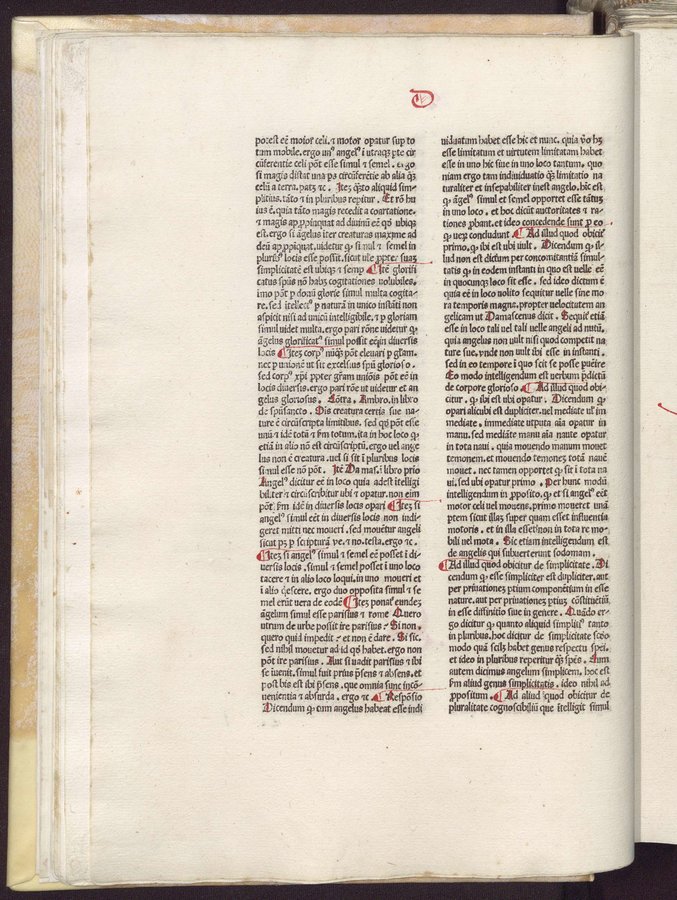 D
potest eē motor celi, ⁊ motor opatur sup to
tam mobile. ergo unꝰ angelꝰ ī utraqꝫ pte cir
cūferentie celi pōt esse simul ⁊ semel. ergo
si magis distat una ps circūferētie ab alia qꝫ
celū a terra. patꝫ ⁊c. Iteꝫ qñto aliquid sim-
plitius, tāto ⁊ in pluribus repitur. Et rō hu
ius ē. quia tāto magis recedit a coartatione.
⁊ magis appropinquat ad divinū eē qđ ubiqꝫ
est. ergo si āgelus iter creaturas maxime ad
deū appropiquat. uidetur ꝙ simul ⁊ semel in
pluribꝰ locis esse possit. sicut ille ppter suaꝫ
simplicitatē est ubiqꝫ ⁊ semp. Itē glorifi
catus spūs nō habꝫ cogitationes volubiles,
imo pōt p donū glorie simul multa cogita-
re. sed itellectꝰ p naturā in unico instāti non
aspicit nisi ad unicū intelligibile. ⁊ p gloriam
simul videt multa. ergo pari rōne uidetur ꝙ
āgelus glorificatꝰ simul possit eē in diversis
locis. Iteꝫ corpꝰ nūqꝫ pōt elevari p gliam.
nec p unionē ut sit excelsius spū glorioso.
sed corpꝰ xpi ppter grām unionis pōt eē in
locis diversis. ergo pari rōe ut uidetur et an
gelus gloriosus. Cōtra. Ambro. in libro
de spūsancto. Ois creatura certis sue na-
ture ē circūscripta limitibus. sed qđ pōt esse
unū ⁊ idē totū ⁊ fm totum. ita in hoc loco ꝙ
etiā in alio nō est circūscriptū. ergo vel ange
lus non ē creatura. vel si sit ī pluribus locis
simul esse nō pōt. Itē Damas. ī libro prio
Angelꝰ dicitur eē in loco quia adest ītelligi
biliter ⁊ circūscribitur ubi ⁊ opatur. non eim
pōt fm idē in diversis locis opari. Iteꝫ si
angelꝰ simul eēt in diversis locis non indi-
geret mitti nec moveri. sed movētur angeli
sicut pꝫ p scripturā ve. ⁊ no. testa. ergo ⁊c.
Iteꝫ si angelꝰ simul ⁊ semel eē posset ī di-
versis locis. simul ⁊ semel posset ī uno loco
tacere ⁊ in alio loco loqui. in uno moveri et
ī alio qescere. ergo duo opposita simul ⁊ se-
mel erūt vera de eodē. Iteꝫ ponaꝰ eundeꝫ
āgelum simul esse parisius ⁊ rome. Quero
utrum de urbe possit ire parisius. Si non.
quero quid impedit ⁊ et non ē dare. Si sic.
sed nihil movetur ad id qđ habet. ergo non
pōt ire parisius. Aut si vadit parisius ⁊ ibi
se īuenit. simul fuit prius psens ⁊ absens. et
post bis est ibi psens. que omnia sunt incō-
uenientia ⁊ absurda. ergo ⁊c. Respōsio
Dicendum ꝙ cum angelus habeat esse indi
uiduatum habet esse hic et nunc. quia vo hꝫ
esse limitatum et virtutem limitatam habet
esse in uno hic siue in uno loco tantum. quo
niam ergo tam individuatio qꝫ limitatio na
turaliter et insepabiliter inest angelo. hīc est
ꝙ āgelꝰ simul et semel opportet esse tātuꝫ
in uno loco. et hoc dicūt auctoritates ⁊ ra-
tiones phant. et ideo concedende sunt p eo
ꝙ uerꝫ concludunt. Ad illud quod obicit
primo. ꝙ ibi est ubi vult. Dicendum ꝙ il-
lud non est dictum per concomitantiā simul-
tatis ꝙ in eodem instanti in quo est velle eē
in quocunqꝫ loco sit esse. sed ideo dictum ē
quia eē in loco uolito sequitur velle sine mo
ra temporis magna. propter velocitatem an
gelicam ut Damascenus dicit. Sequitˢ etiā
esse in loco tali vel tali velle angeli ad nutū.
quia angelus non vult nisi quod competit na
ture sue. vnde non vult ibi esse in instanti.
sed in eo tempore ī quo scit se posse puenire
Eo modo intelligendum est verbum pdictū
de corpore glorioso. Ad illud quod obi-
citur. ꝙ ibi est ubi opatur. Dicendum ꝙ
opari alicubi est dupliciter. uel mediate ul' im
mediate. immediate utputa aīa opatur in
manu. sed mediāte manu aīa naute opatur
in tota navi. quia movendo manum movet
temonem. et movendo temoneꝫ totā navē
movet. nec tamen opportet ꝙ sit ī tota na
vi. sed ubi opatur primo. Per hunc modū
intelligendum in pposito. ꝙ et si angelꝰ eēt
motor celi vel movens. primo moveret unā
ptem sicut illaꝫ super quam esset influentia
motoris. et in illa esset. non in tota re mo-
bili uel mota. Sic etiam intelligendum est
de angelis qui subverterunt sodomam.
Ad illud quod obicitur de simplicitate. Di
cendum ꝙ esse simpliciter est dupliciter. aut
per privationeꝫ ptium componētium in esse
nature. aut per privationeꝫ ptiuꝫ cōstituētiū
in esse diffinitio siue in genere. Quādo er-
go dicitur ꝙ quanto aliquid simplitiꝰ tanto
in pluribus. hoc dicitur de simplicitate scdo
modo quā scilꝫ habet genus respectu spēi.
et ideo in pluribus reperitur qꝫ spēs. Cum
autem dicimus angelum simplicem. hoc est
fm aliud genus simplicitatis. ideo nihil ad
ppositum. Ad aliud quod obicitur de
pluralitate cognoscibiliū que ītelligit simul